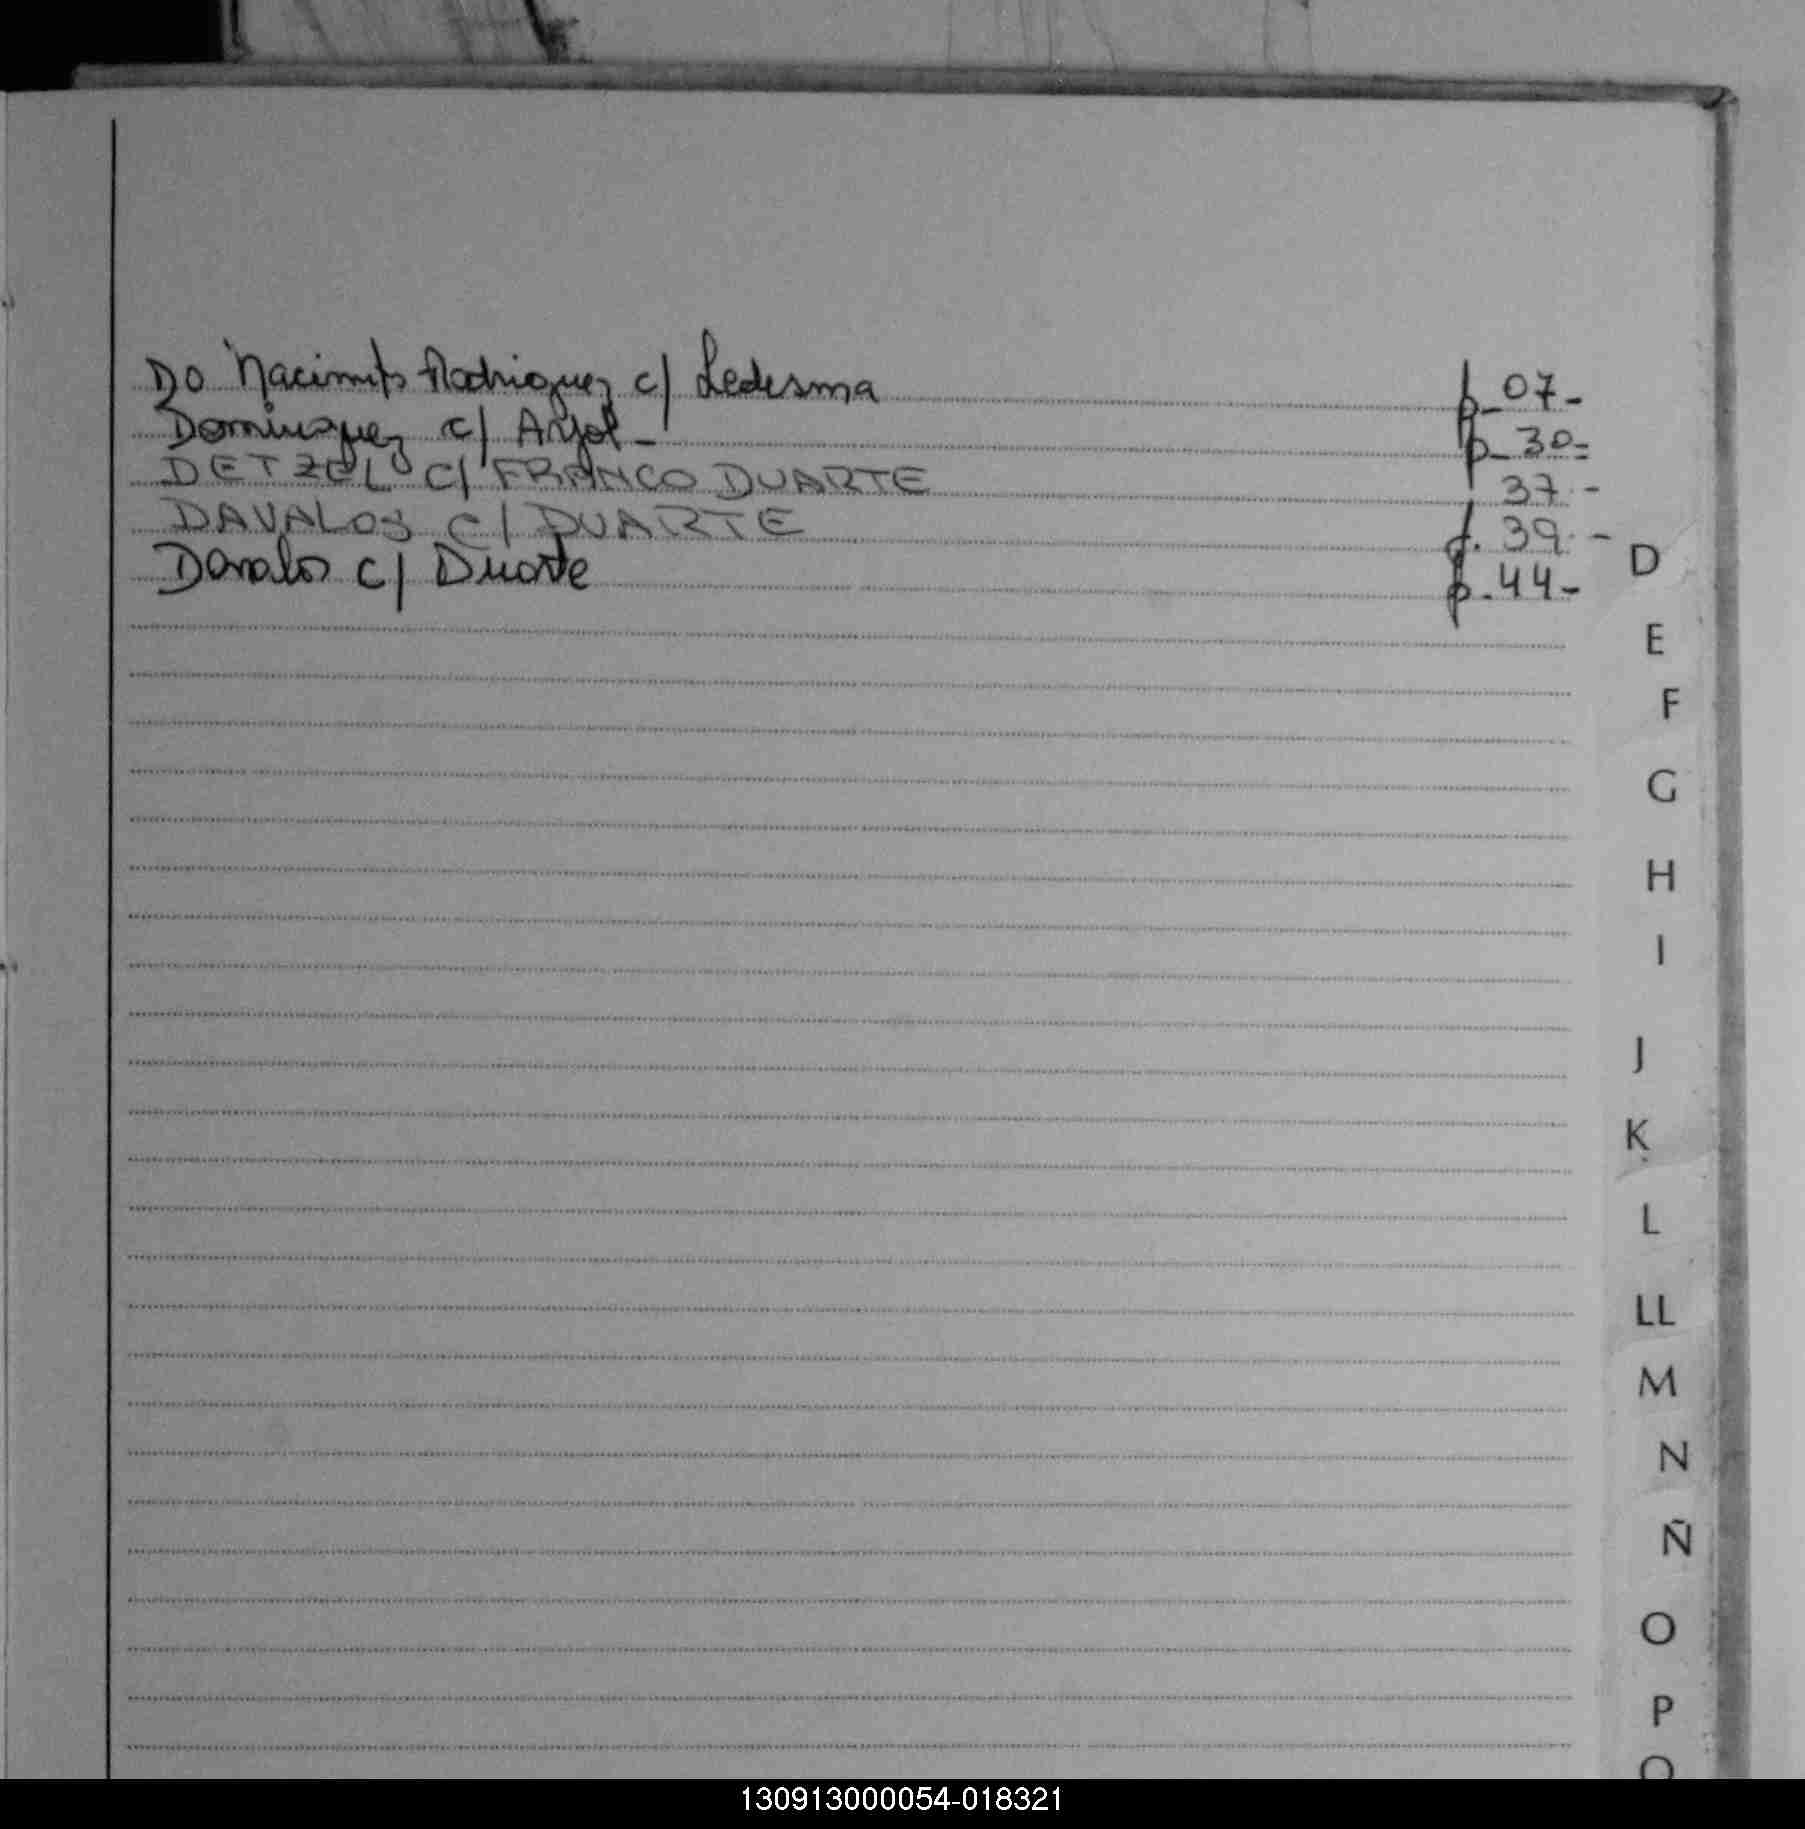 Do Nacimto Rodriguez c/ Ledesma p_07-
Dominguez c/ Anjol- p_30=
DETZEL c/ FRANCO DUARTE 37.-
DAVALOS c/ DUARTE f. 39.-
Davalos c/ Duarte p.44-
D
E
F
G
H
I
J
K
L
LL
M
N
Ñ
O
P
130913000054-018321